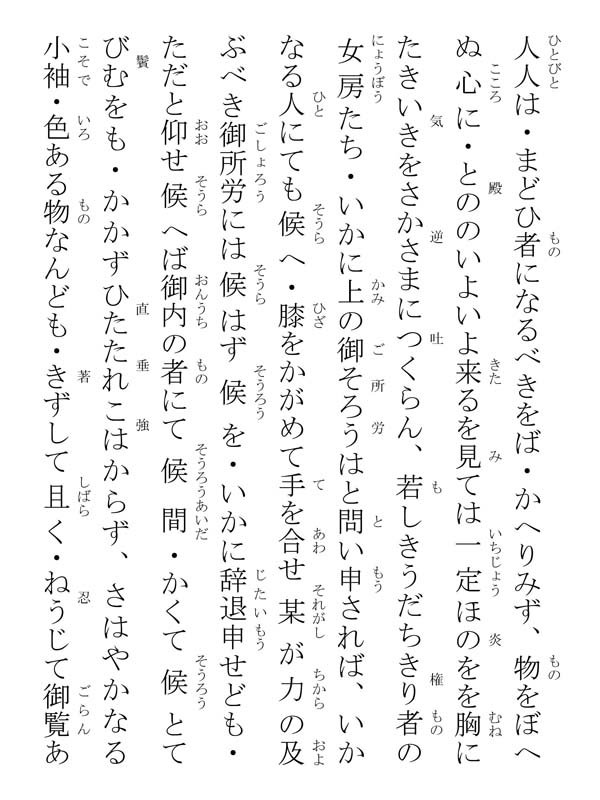 人人は・まどひ者になるべきをば・かへりみず、物をぼへ
ぬ心に・とののいよいよ来るを見ては一定ほのをを胸に
たきいきをさかさまにつくらん、若しきうだちきり者の
女房たち・いかに上の御そろうはと問い申されば、いか
なる人にても候へ・膝をかがめて手を合せ某が力の及
ぶべき御所労には候はず候を・いかに辞退申せども・
ただと仰せ候へば御内の者にて候間・かくて候とて
びむをも・かかずひたたれこはからず、さはやかなる
小袖・色ある物なんども・きずして且く・ねうじて御覧あ